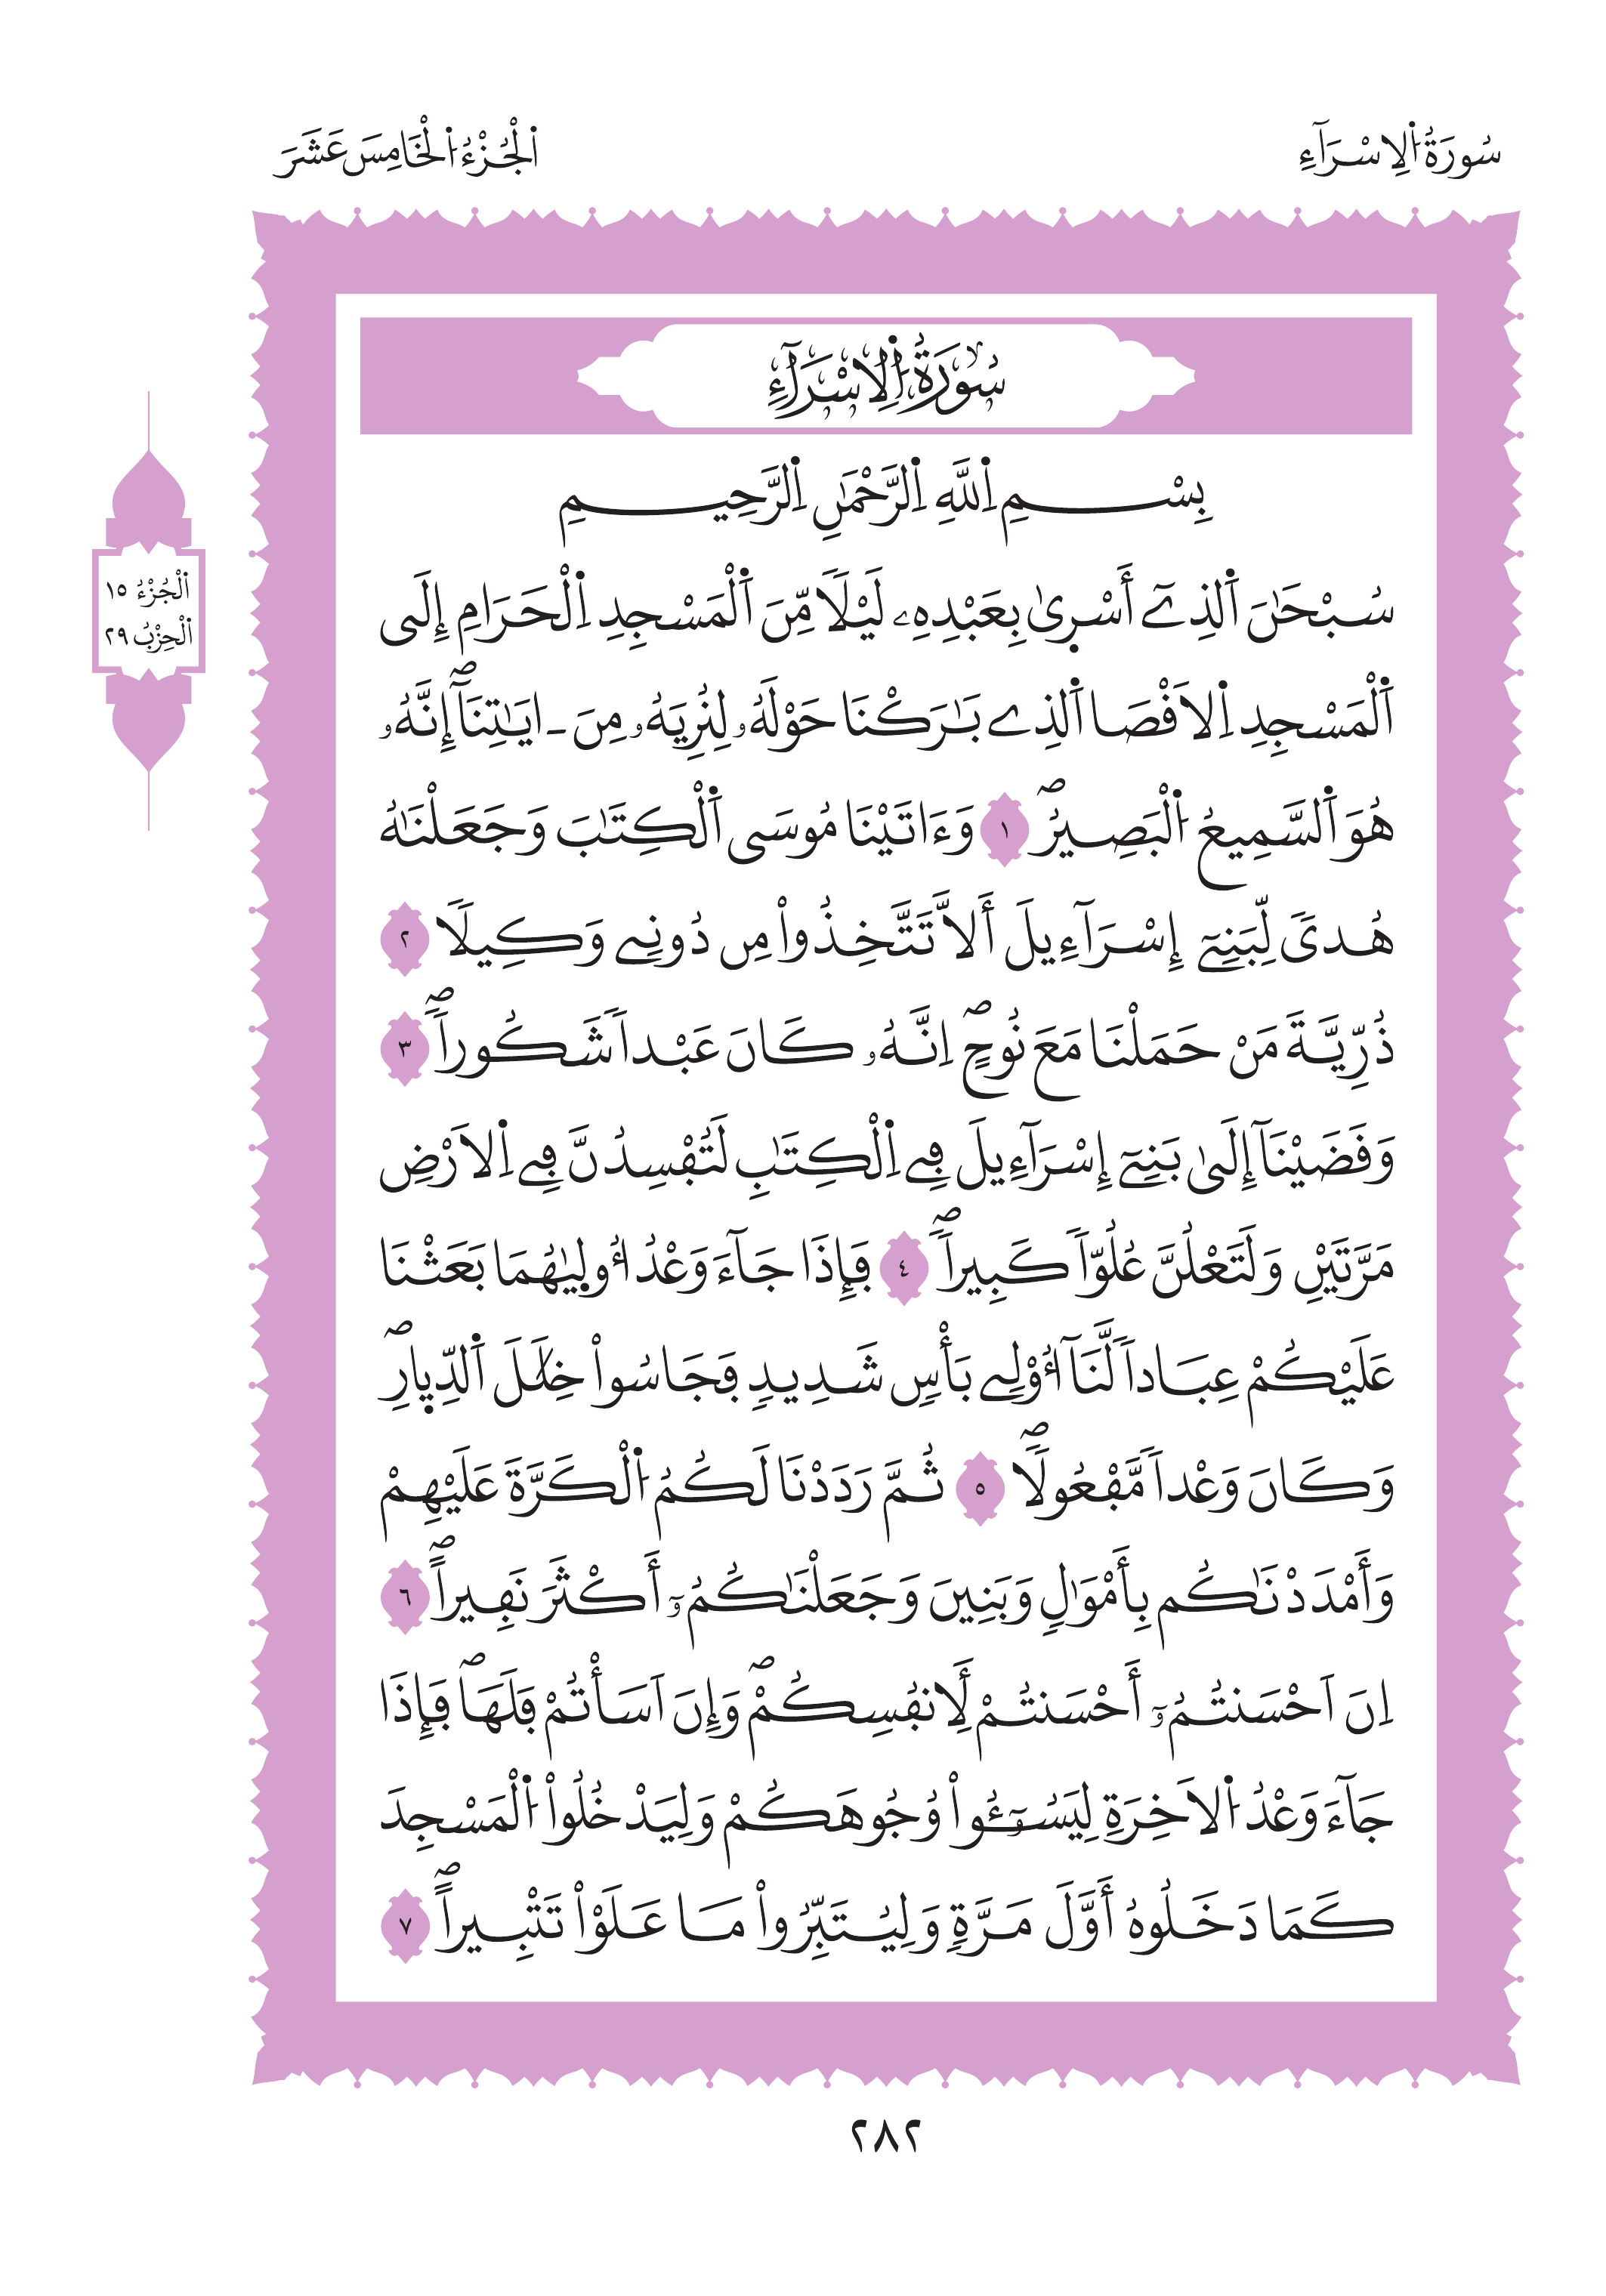 سُورَةُ اُ۬لِاسْرَآءِ
اَ۬لْجُزْءُ اُ۬لْخَامِسَ عَشَرَ
سُورَةُ اُ۬لِاسْرَآءِ
اَ۬لْجُزْءُ ١٥
اَ۬لْحِزْبُ ٢٩
بِسْمِ اِ۬للَّهِ اِ۬لرَّحْمَٰنِ اِ۬لرَّحِيمِ
سُبْحَٰنَ اَ۬لذِےٓ أَسْر۪يٰ بِعَبْدِهِۦ لَيْلاَ مِّنَ اَ۬لْمَسْجِدِ اِ۬لْحَرَامِ إِلَى
اَ۬لْمَسْجِدِ اِ۬لَاقْصَا اَ۬لذِے بَٰرَكْنَا حَوْلَهُۥ لِنُرِيَهُۥ مِنَ ـ ايَٰتِنَآۖ إِنَّهُۥ
هُوَ اَ۬لسَّمِيعُ اُ۬لْبَصِيرُۖ ١ وَءَاتَيْنَا مُوسَى اَ۬لْكِتَٰبَ وَجَعَلْنَٰهُ
هُدىَ لِّبَنِےٓ إِسْرَآءِيلَ أَلاَّ تَتَّخِذُواْ مِن دُونِے وَكِيلاَ ٢
ذُرِّيَّةَ مَنْ حَمَلْنَا مَعَ نُوحٍۖ اِنَّهُۥ كَانَ عَبْداَ شَكُوراَۖ ٣
وَقَضَيْنَآ إِلَىٰ بَنِےٓ إِسْرَآءِيلَ فِے اِ۬لْكِتَٰبِ لَتُفْسِدُنَّ فِے اِ۬لَارْضِ
مَرَّتَيْنِ وَلَتَعْلُنَّ عُلُوّاَ كَبِيراَۖ ٤ فَإِذَا جَآءَ وَعْدُ أُول۪يٰهُمَا بَعَثْنَا
عَلَيْكُمْ عِبَاداَ لَّنَآ أُوْلِے بَأْسٍ شَدِيدٍ فَجَاسُواْ خِلَٰلَ اَ۬لدِّي۪ارِۖ
وَكَانَ وَعْداَ مَّفْعُولاَۖ ٥ ثُمَّ رَدَدْنَا لَكُمُ اُ۬لْكَرَّةَ عَلَيْهِمْ
وَأَمْدَدْنَٰكُم بِأَمْوَٰلٍ وَبَنِينَ وَجَعَلْنَٰكُمُۥٓ أَكْثَرَ نَفِيراًۖ ٦
اِنَ اَحْسَنتُمُۥٓ أَحْسَنتُمْ لِأَنفُسِكُمْۖ وَإِنَ اَسَأْتُمْ فَلَهَاۖ فَإِذَا
جَآءَ وَعْدُ اُ۬لَاخِرَةِ لِيَسُـُٔواْ وُجُوهَكُمْ وَلِيَدْخُلُواْ اُ۬لْمَسْجِدَ
كَمَا دَخَلُوهُ أَوَّلَ مَرَّةٍ وَلِيُتَبِّرُواْ مَا عَلَوْاْ تَتْبِيراًۖ ٧
٢٨٢